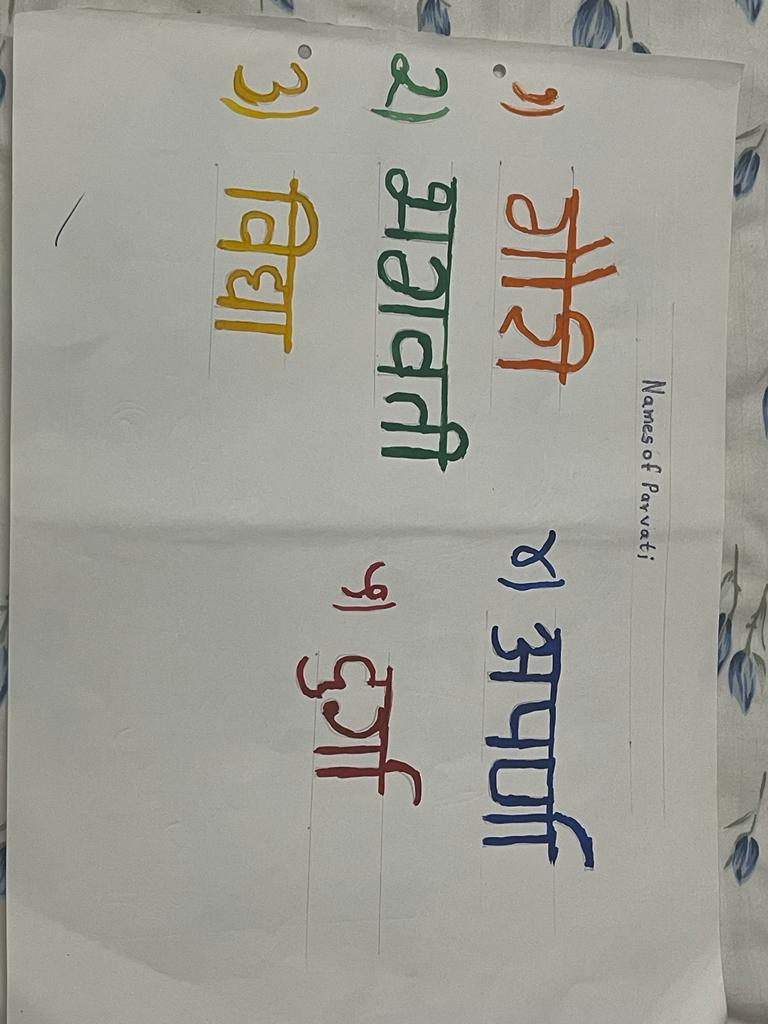 Names of Parvati
१) गौरी
२) भगवती
३) विद्या
४) अपर्णा
५) दुर्गा